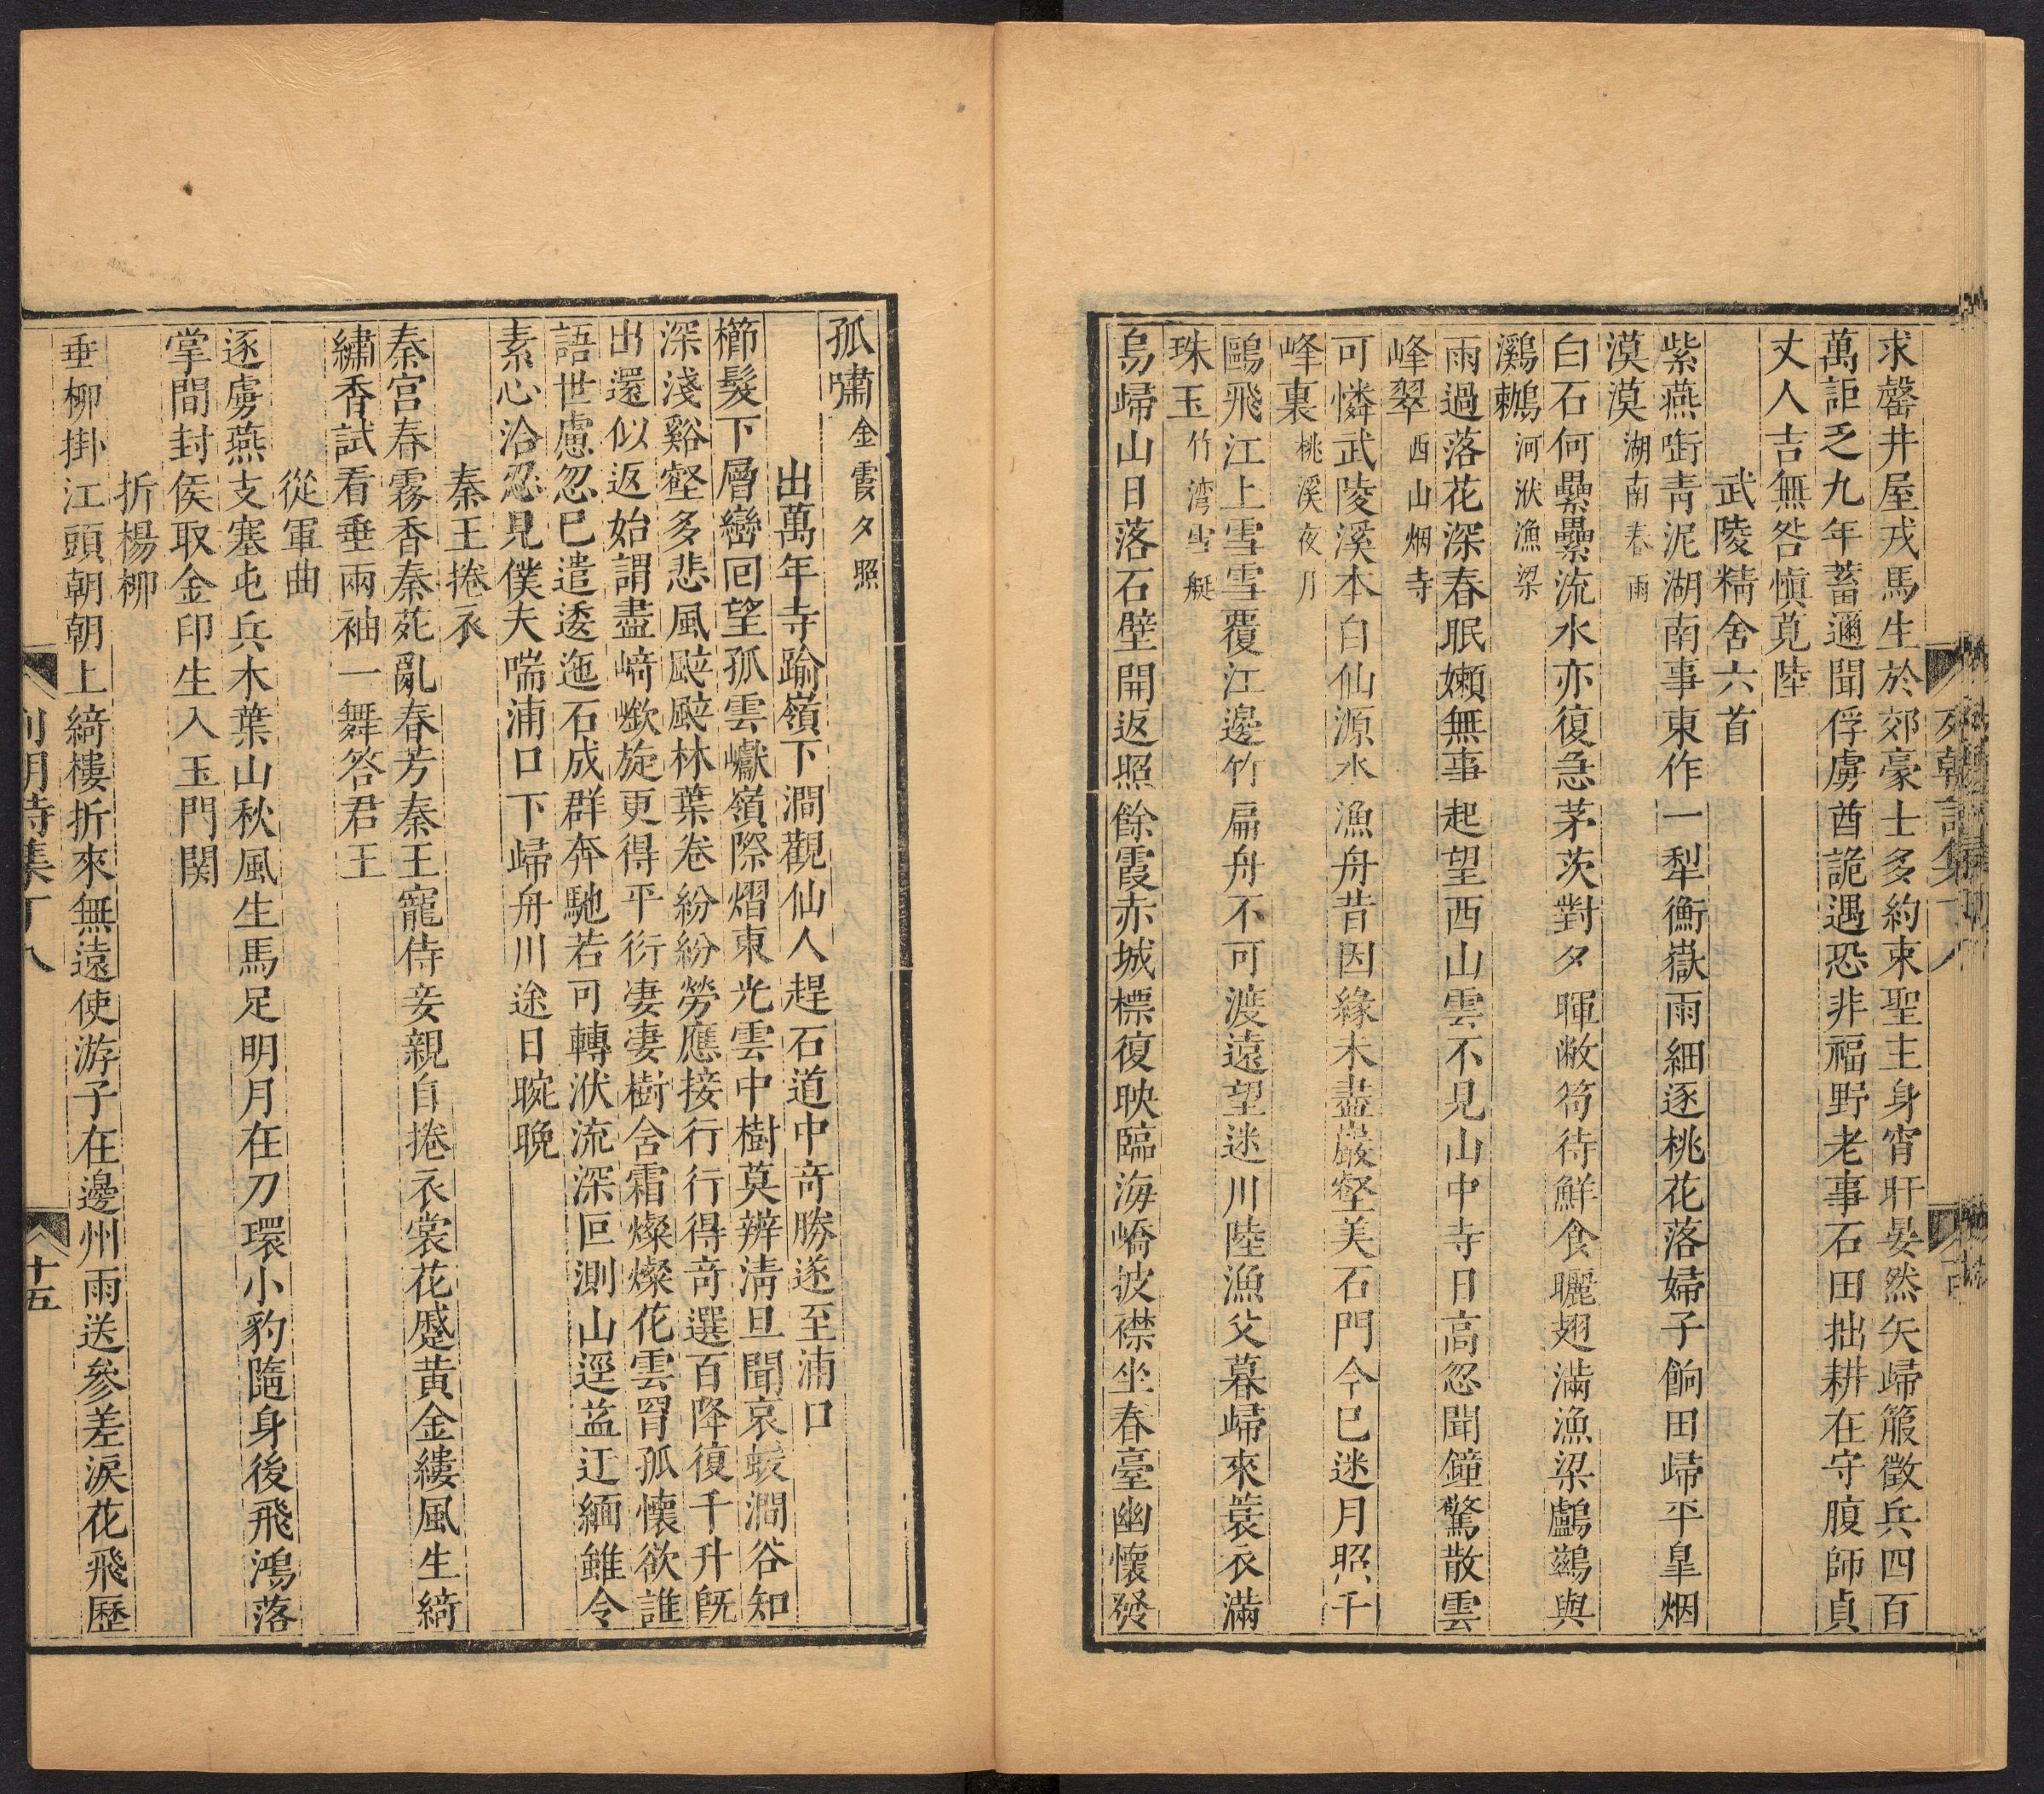 求罄井屋戎馬生於郊豪士多約束聖主身宵旰晏然矢歸箙徵兵四百
萬詎乏九年蓄邇聞俘虜酋詭遇恐非福野老事石田拙耕在守腹師貞
丈人吉無咎愼莧陸
武陵精舍六首
紫燕啣靑泥湖南事東作一犁衡嶽雨細逐桃花落婦子餉田歸平臯烟
漠漠湖南春雨
白石何纍纍流水亦復急茅茨對夕暉敝笱待鮮食曬翅滿漁梁鸕鷀與
鸂鶒河洑漁梁
雨過落花深春眠嬾無事起望西山雲不見山中寺日高忽聞鐘驚散雲
峰翠西山烟寺
可憐武陵溪本自仙源水漁舟昔因緣未盡巖壑美石門今已迷月照千
峰裏桃溪夜月
鷗飛江上雪雪覆江邊竹扁舟不可渡遠望迷川陸漁父暮歸來蓑衣滿
珠玉竹湾雪艇
鳥歸山日落石壁開返照餘霞赤城標復映臨海嶠披襟坐春臺幽懷發
孤嘯金霞夕照
出萬年寺踰嶺下澗觀仙人趕石道中奇勝遂至浦口
櫛髮下層巒回望孤雲巘嶺際熠東光雲中樹莫辨淸旦聞哀蝯澗谷知
深淺谿壑多悲風颼颼林葉卷紛紛勞應接行行得奇選百降復千升旣
出還似返始謂盡崎嶔旋更得平衍凄凄樹含霜燦燦花雲罥孤懷欲誰
語世慮忽已遣逶迤石成群奔馳若可轉洑流深叵測山逕益迂緬雖令
素心洽忍見僕夫喘浦口下歸舟川途日晼晚
秦王捲衣
秦宮春霧香秦苑亂春芳秦王寵侍妾親自捲衣裳花蹙黃金縷風生綺
繡香試看垂兩袖一舞答君王
從軍曲
逐虜燕支塞屯兵木葉山秋風生馬足明月在刀環小豹隨身後飛鴻落
掌間封侯取金印生入玉門関
折楊柳
垂柳掛江頭朝朝上綺樓折來無遠使游子在邊州雨送參差淚花飛歷
列朝詩集丁八
十五